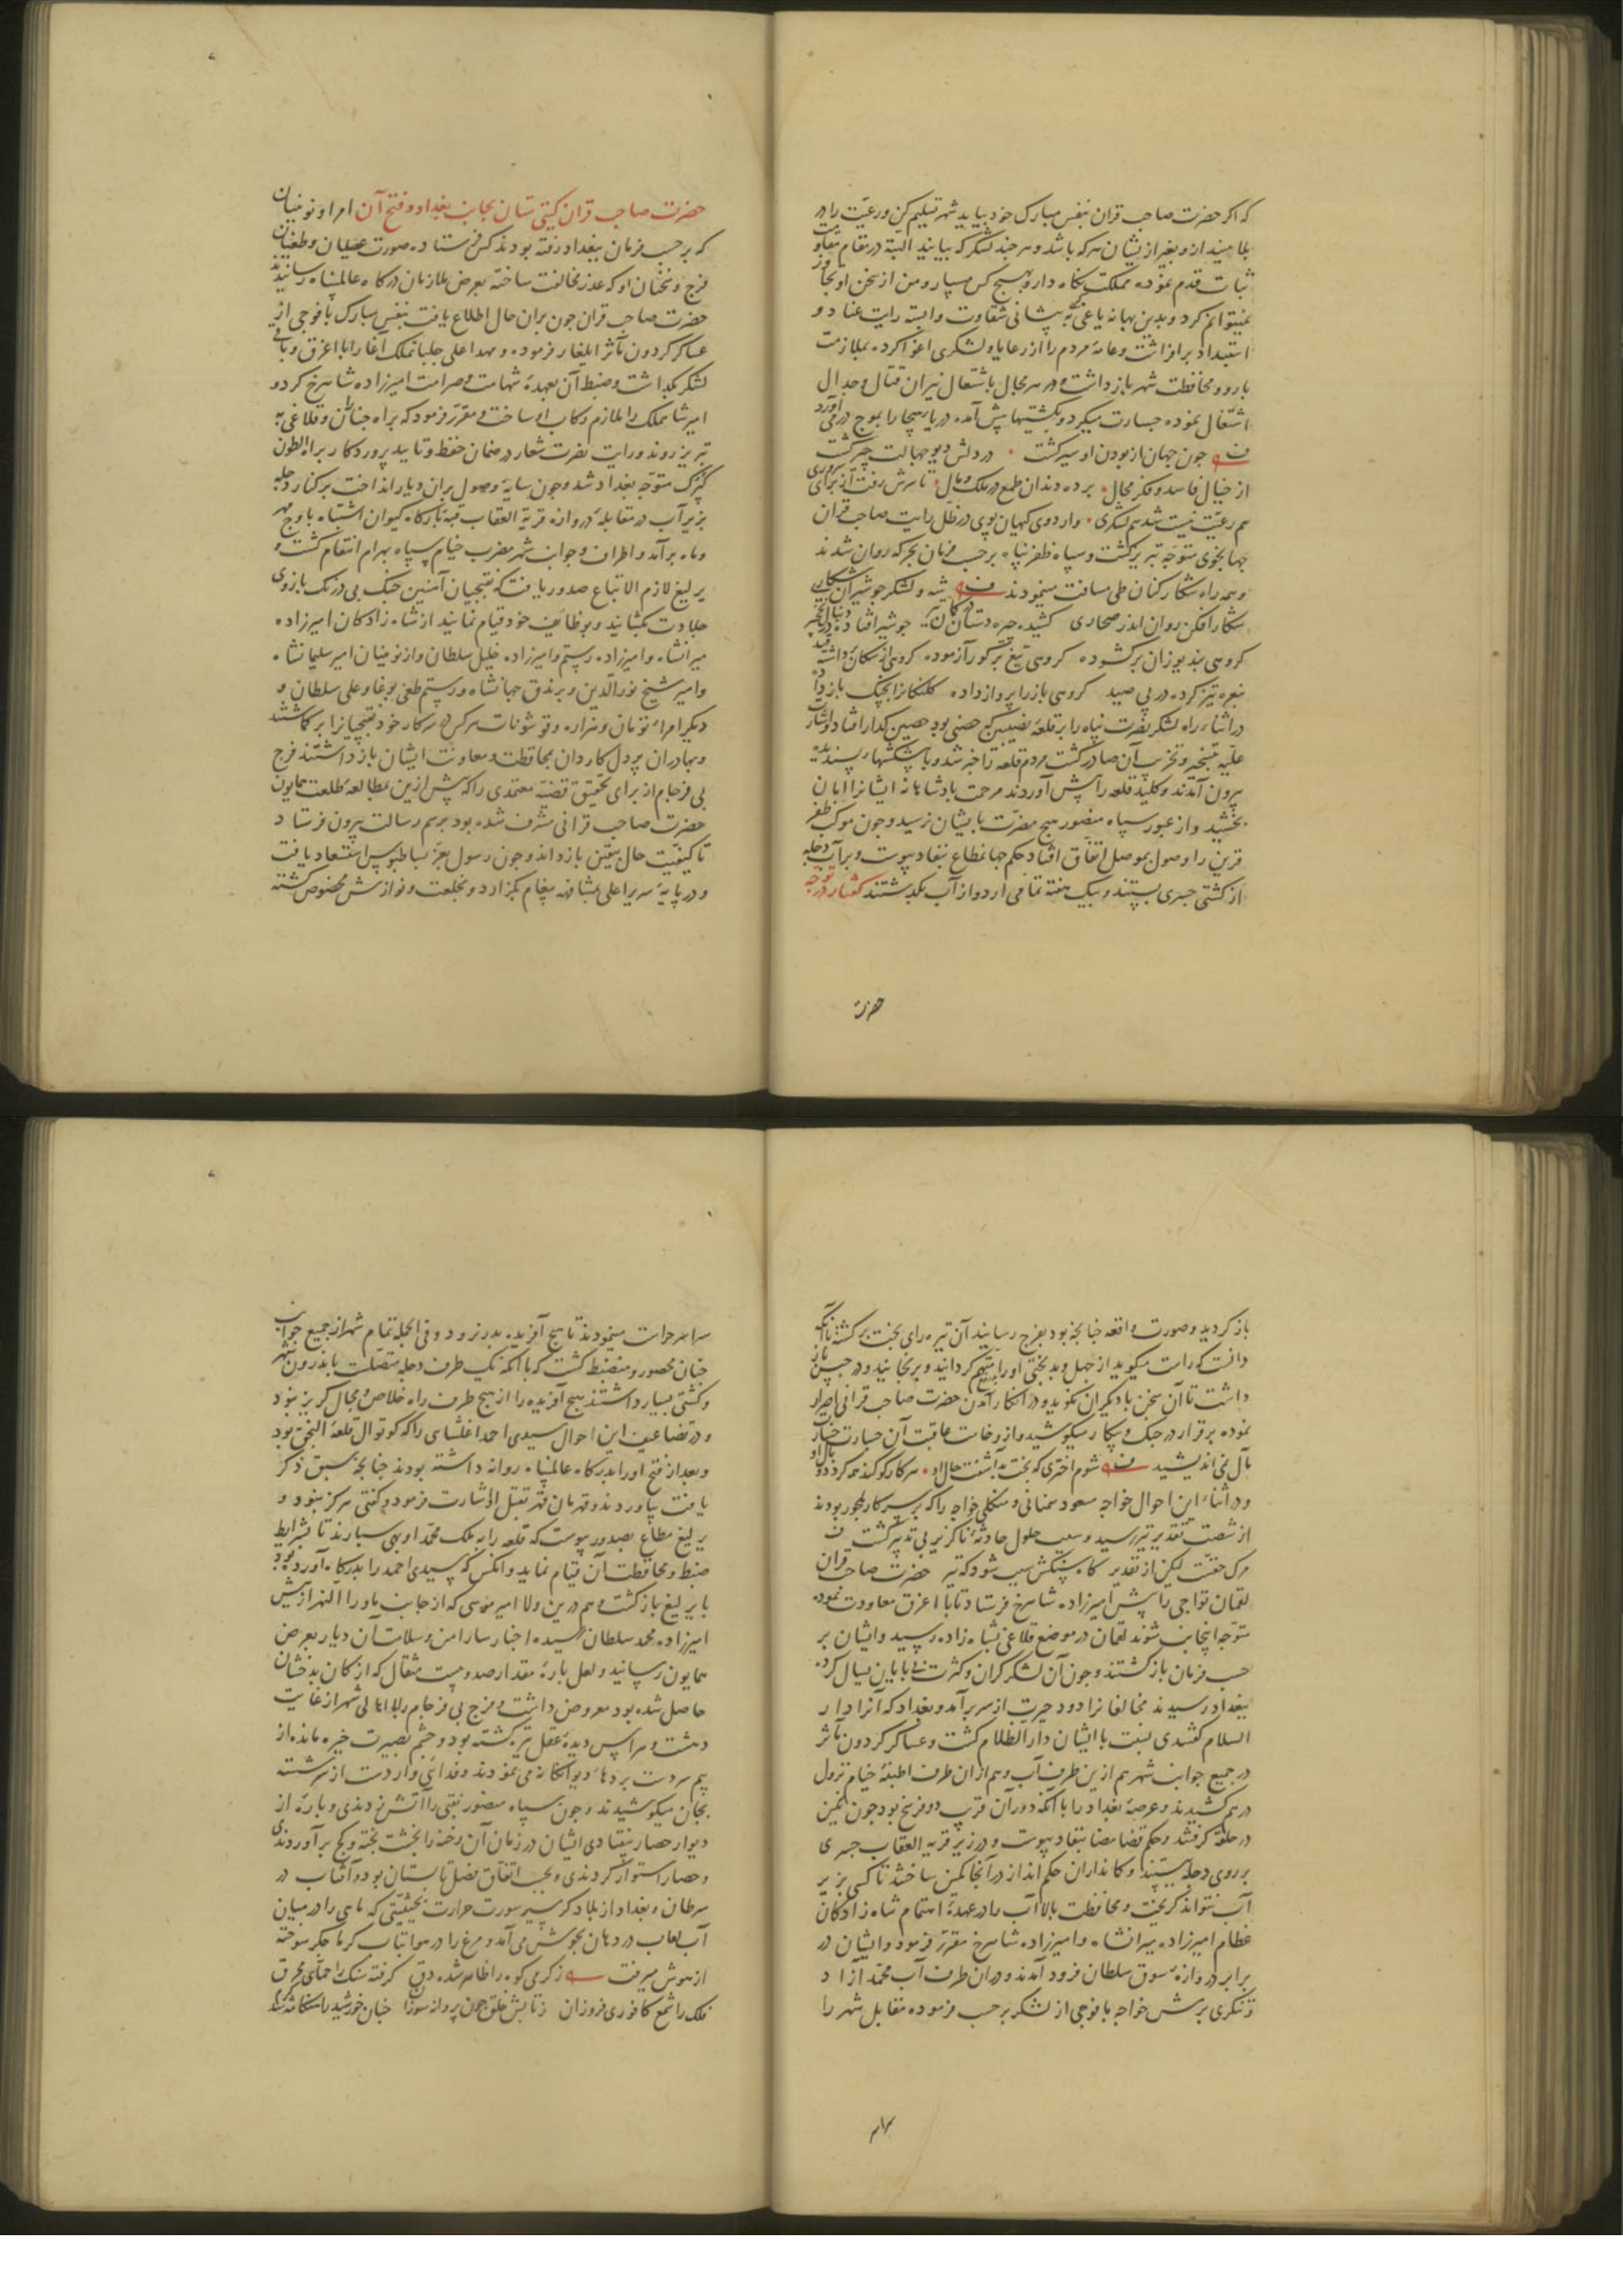 که اکر حضرت صاحب قران بنفس مبارک خود بیاید شهر تسلیم کن و رعیت را در
بلا مینداز و بغیر از یشان هرکه باشد و هرچند لشکر که بیایند البته در مقام مقاومت
ثبات قدم نموده مملکت نکاه دار و بهیچ کس مسپار و من از سخن او تجاوز
نمیتوانم کرد و بدین بهانه یاغی پیشانی شقاوت وابسته رایت عناد و
استبداد برافراشت و عامهٔ مردم را از رعایا و لشکری اغوا کرده بملازمت
بارو و محافظت شهر بازداشت و در هر مجال باشتعال نیران قتال و جدال
اشتغال نموده جسارت میکرد و بکشتیها پیش آمده دریای هیجا را بموج درمی آورد
جون جهان از بودن او سیر کشت در دلش دیو جهالت چیر کشت
از خیال فاسد و فکر محال برده دندان طمع در ملک و مال تا سرش رفت از برای سروری
هم رعیت نیست شد هم لشکری واردوی کیهان پوی در ظل رایت صاحب قران
جهانجوی متوجه تبریز کشت و سپاه ظفرپناه برحسب فرمان بجرکه روان شدند
و همه راه شکارکنان طی مسافت مینمودند شه و لشکر جو شیران شکاری
شکار افکن روان اندر صحاری کشیده جره دستان جو شیر افتاده
کروهی بند یوزان برکشوده کروهی تیغ بر کور آزموده کروهی از سکان برداشته قید
بنعره تیز کرده در پی صید کروهی باز را پرواز داده کلنکانرا بجنک باز داده
در اثناء راه لشکر نصرت پناه را بر قلعهٔ نصیبین که حصنی بود حصین کذار افتاد و اشارت
علیه بتسخیر و تخریب آن صادر کشت مردم قلعه را خبر شد و با پیشکشهاء پسندیده
بیرون آمدند و کلید قلعه را پیش آوردند مرحمت پادشاهانه ایشانرا امان
بخشید و از عبور سپاه منصور هیچ مضرت بایشان نرسید و جون موکب ظفر
قرین را وصول بموصل اتفاق افتاد حکم جهانمطاع بنفاد پیوست و بر آب دجله
از کشتی جسری بستند و بیک هفته تمامی اردو از آب بکذشتند کفتار در توجه
حضرت
حضرت صاحب قران کیتی ستان بجانب بغداد و فتح آن امرا و نوئینان
که برحسب فرمان ببغداد رفته بودند کس فرستاده صورت عصیان و طغیان
فرج و سخنان او که عذر مخالفت ساخته بعرض ملازمان درکاه عالمپناه رسانیدند
حضرت صاحب قران جون بران حال اطلاع یافت بنفس مبارک با فوجی از
عساکر کردون مآثر ایلغار فرموده و مهد اعلی جلبانملک آغا را با اغرق و باقی
لشکر بکذاشت و ضبط آن بعهدهٔ شهامت و صرامت امیرزاده شاهرخ کرد و
امیر شاهملک را ملازم رکاب او ساخت و مقرر فرمود که براه جناران و قلاغی به
تبریز روند و رایت نصرت شعار در ضمان حفظ و تایید پروردکار براه الطون
کپرک متوجه بغداد شد و جون سایهٔ وصول بران دیار انداخت بر کنار دجله
بزیر آب در مقابلهٔ دروازه قریة العقاب قبه بارکاه کیوان اشتباه باوج مهر
و ماه برآمد و اطراف و جوانب شهر مضرب خیام سپاه بهرام انتقام کشت و
یرلیغ لازم الاتباع صدور یافت که نقبجیان آهنین جنک بی درنک بازوی
جلادت بکشایند و بوظائف خود قیام نمایند از شاه زادکان امیرزاده
میرانشاه و امیرزاده رستم و امیرزاده خلیل سلطان و از نوئینان امیر سلیمانشاه
و امیر شیخ نورالدین و برندق جهانشاه و رستم طغی بوغا و علی سلطان و
دیکر امراء تومان و هزاره و قوشونات هرکس در سرکار خود نقبجیانرا برکماشتند
و بهادران پردل کاردان بمحافظت و معاونت ایشان بازداشتند فرج
بی فرجام از برای تحقیق قضیه معتمدی را که پیش ازین بمطالعهٔ طلعت همایون
حضرت صاحب قرانی مشرف شده بود برسم رسالت بیرون فرستاد
تا کیفیت حال بیقین بازداند و جون رسول بعز بساطبوس استسعاد یافت
و در پایه سریر اعلی بمشافهه پیغام بکزارد و بخلعت و نوازش مخصوص کشته
باز کردید و صورت واقعه چنانچه بود بفرج رسانید آن تیره رای بخت برکشته با آنکه
دانست که راست میکوید از جهل و بدبختی او را متهم کردانید و برنجانید و در حبس باز
داشت تا آن سخن با دیکران نکوید و در انکار آمدن حضرت صاحب قرانی اصرار
نموده برقرار در جنک و پیکار میکوشید و از وخامت عاقبت آن جسارت خسار
مآل نمی اندیشید شوم اختری که بخت برآشفت حال او هر کار کو کند همه کردد وبال او
و در اثناء این احوال خواجه مسعود سمنانی و منکلی خواجه را که بر سرکار ملجور بودند
از شصت تقدیر تیر رسید و سبب حلول حادثهٔ ناکزیر بی تدبیر کشت
مرک حقست لیکن از تقدیر کاه سنکش سبب شود که تیر حضرت صاحب قران
لقمان تواجی را پیش امیرزاده شاهرخ فرستاد تا با اغرق معاودت نموده
متوجه اینجانب شوند لقمان در موضع قلاغی بشاه زاده رسید و ایشان بر
حسب فرمان بازکشتند و جون آن لشکر کران و کثرت بی پایان یسال کرده
ببغداد رسیدند مخالفانرا دود حیرت از سر برآمد و بغداد که آنرا دار
السلام کفتندی نسبت با ایشان دار الظلام کشت و عساکر کردون مآثر
در جمیع جوانب شهر هم ازین طرف آب و هم ازان طرف اطبقهٔ خیام نزول
درهم کشیدند و عرصهٔ بغداد را با آنکه دوران قریب دو فرسخ بود جون نکین
در حلقه کرفتند و حکم قضا مضا بنفاد پیوست و در زیر قریه العقاب جسری
بر روی دجله ببستند و کمانداران حکم انداز در آنجا کمین ساختند تا کسی بزیر
آب نتواند کریخت و محافظت بالا آب را در عهدهٔ اهتمام شاه زادکان
عظام امیرزاده میرانشاه و امیرزاده شاهرخ مقرر فرمود و ایشان در
برابر دروازه سوق سلطان فرود آمدند و دران طرف آب محمد آزاد
و تنکری برمش خواجه با فوجی از لشکر برحسب فرموده مقابل شهر را
سراسر حراست مینمودند تا هیچ آفریده بدر نرود و فی الجمله تمام شهر از جمیع جوانب
چنان محصور و منضبط کشت که با آنکه یک طرف دجله متصلست باندرون شهر
و کشتی بسیار داشتند هیچ آفریده را از هیچ طرف راه خلاص و مجال کریز نبود
و در تضاعیف این احوال سیدی احمد اغلشای را که کوتوال قلعهٔ النجق بود
و بعد از فتح او را بدرکاه عالمپناه روانه داشته بودند چنانچه سبق ذکر
یافت بیاوردند و قهرمان قهر بقتل او اشارت فرمود و کفتی هرکز نبود و
یرلیغ مطاع بصدور پیوست که قلعه را به ملک محمد اوبهی سپارند تا بشرایط
ضبط و محافظت آن قیام نماید و آنکس که سیدی احمد را بدرکاه آورده بود
با یرلیغ بازکشت و هم درین ولا امیر موسی که از جانب ماوراالنهر از پیش
امیرزاده محمد سلطان رسیده اخبار سار امن و سلامت آن دیار بعرض
همایون رسانید و لعل پارهٔ مقدار صد و بیست مثقال که از کان بدخشان
حاصل شده بود معروض داشت و فرج بی فرجام را با اهالی شهر از غایت
دهشت و هراس دیدهٔ عقل تیره کشته بود و چشم بصیرت خیره مانده از
بیم سر دست بردهاء دیوانکانه می نمودند و فدائی وار دست از سر شسته
بجان میکوشیدند و جون سپاه منصور نقبی را آتش زدندی و پارهٔ از
دیوار حصار بیفتادی ایشان در زمان آن رخنه را بخشت پخته و کج برآوردندی
و حصار استوار کردندی و بحسب اتفاق فصل تابستان بود و آفتاب در
سرطان و بغداد از بلاد کرمسیر سورت حرارت بحیثیتی که ماهی را در میان
آب لعاب در دهان بجوش می آمد و مرغ را در هوا بتاب کرما جکر سوخته
از هوش میرفت ز کرمی کوه را ظاهر شده دق کرفته سنک را حمای محرق
فلک را شمع کافوری فروزان ز تابش خلق جون پروانه سوزان
سراسر